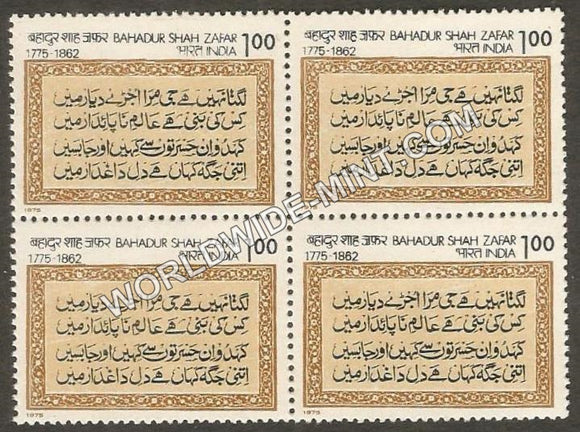 बहादुर शाह ज़फ़र BAHADUR SHAH ZAFAR 1.00
1775-1862 भारत INDIA
لگتا نہیں ہے جی مرا اجڑے دیار میں
کس کی بنی ہے عالم ناپائدار میں
کہدو ان حسرتوں سے کہیں اور جا بسیں
اتنی جگہ کہاں ہے دل داغدار میں
1975
बहादुर शाह ज़फ़र BAHADUR SHAH ZAFAR 1.00
1775-1862 भारत INDIA
لگتا نہیں ہے جی مرا اجڑے دیار میں
کس کی بنی ہے عالم ناپائدار میں
کہدو ان حسرتوں سے کہیں اور جا بسیں
اتنی جگہ کہاں ہے دل داغدار میں
बहादुर शाह ज़फ़र BAHADUR SHAH ZAFAR 1.00
1775-1862 भारत INDIA
لگتا نہیں ہے جی مرا اجڑے دیار میں
کس کی بنی ہے عالم ناپائدار میں
کہدو ان حسرتوں سے کہیں اور جا بسیں
اتنی جگہ کہاں ہے دل داغدار میں
1975
बहादुर शाह ज़फ़र BAHADUR SHAH ZAFAR 1.00
1775-1862 भारत INDIA
لگتا نہیں ہے جی مرا اجڑے دیار میں
کس کی بنی ہے عالم ناپائدار میں
کہدو ان حسرتوں سے کہیں اور جا بسیں
اتنی جگہ کہاں ہے دل داغدار میں
1975
WORLDWIDE-MINT.COM